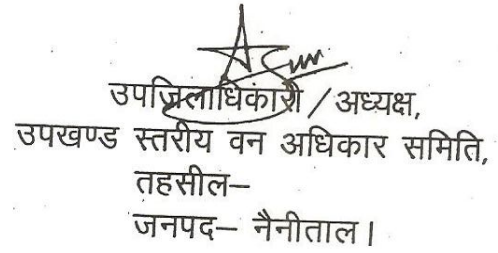 उपजिलाधिकारी / अध्यक्ष,
उपखण्ड स्तरीय वन अधिकार समिति,
तहसील–
जनपद– नैनीताल।